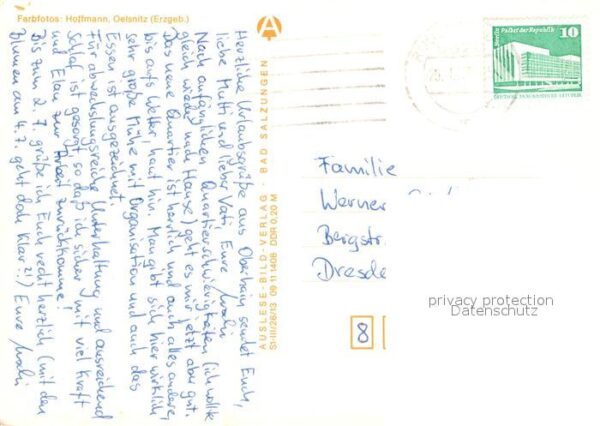 Farbfotos: Hoffmann, Oelsnitz (Erzgeb.)
Herzliche Urlaubsgrüße aus Oberhain sendet Euch,
liebe Mutti und lieber Vati, Eure
Nach anfänglichen Quartierschwierigkeiten (ich wollte
gleich wieder nach Hause) geht es mir jetzt aber gut.
Das neue Quartier ist herrlich und auch alles andere,
bis aufs Wetter, haut hin. Man gibt sich hier wirklich
sehr große Mühe mit Organisation und auch das
Essen ist ausgezeichnet.
Für abwechslungsreiche Unterhaltung und ausreichend
Schlaf ist gesorgt, so daß ich sicher mit viel Kraft
und Elan zur Arbeit zurückkomme!
Bis zum 2.7. grüße ich Euch recht herzlich (mit den
Blumen am 4.7. geht doch klar?!) Eure
AUSLESE-BILD-VERLAG · BAD SALZUNGEN
St-III/26/13 09 11 1408 DDR 0,20 M
Berlin Palast der Republik
10
DEUTSCHE DEMOKRATISCHE REPUBLIK
Familie
Werner
Bergstr.
Dresde
privacy protection
Datenschutz
8